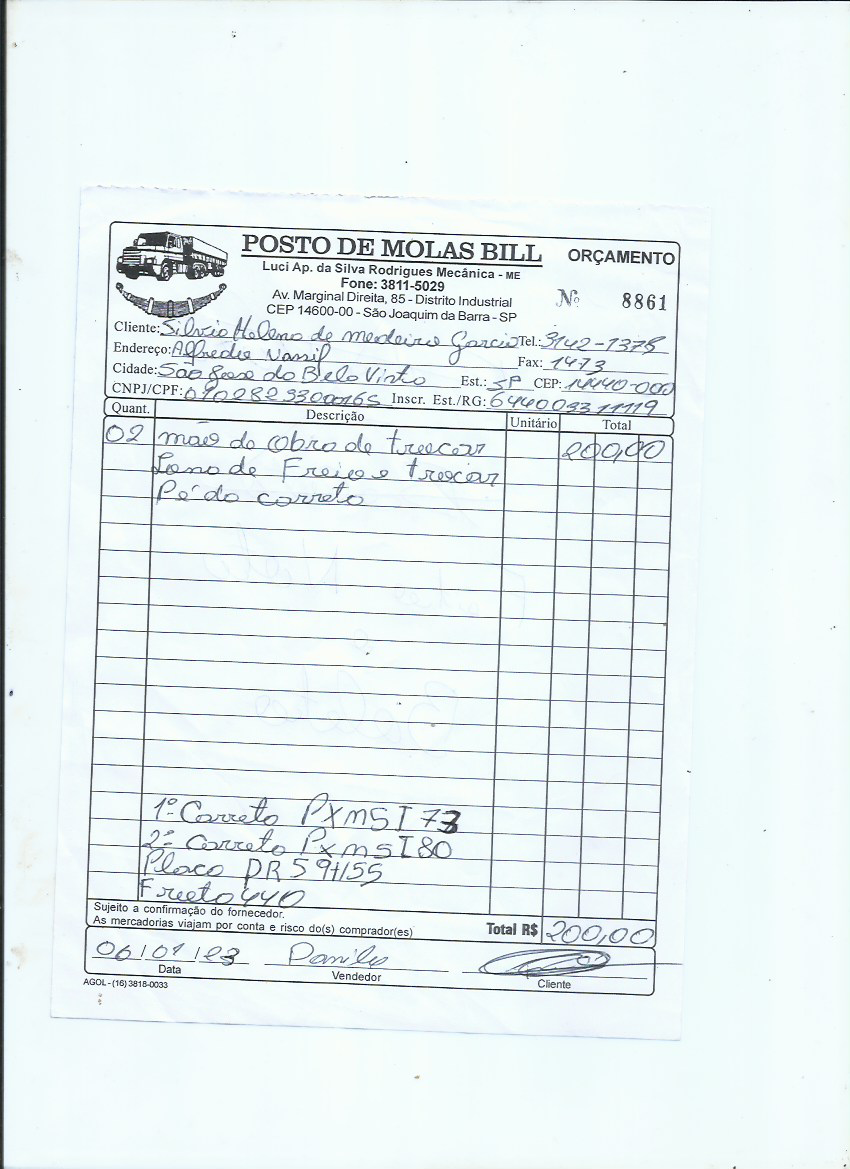 POSTO DE MOLAS BILL
ORÇAMENTO
Luci Ap. da Silva Rodrigues Mecânica - ME
Fone: 3811-5029
Av. Marginal Direita, 85 - Distrito Industrial
CEP 14600-00 - São Joaquim da Barra - SP
Nº 8861
Cliente: Silvio Heleno de medeiro Garcia Tel.: 3142-1378
Endereço: Alfredo Nassif Fax: 1473
Cidade: São Jose do Belo Visto Est.: SP CEP: 14440-000
CNPJ/CPF: Inscr. Est./RG:
Quant. Descrição Unitário Total
02 mão do Obra de troocar 200,00
Lona de Freio e troocar
Pé do carreto
1º Carreto PXMSI73
2º Carreto PXMSI80
Placo
Sujeito a confirmação do fornecedor.
As mercadorias viajam por conta e risco do(s) comprador(es)
Total R$ 200,00
Danilo
Data Vendedor Cliente
AGOL - (16) 3818-0033